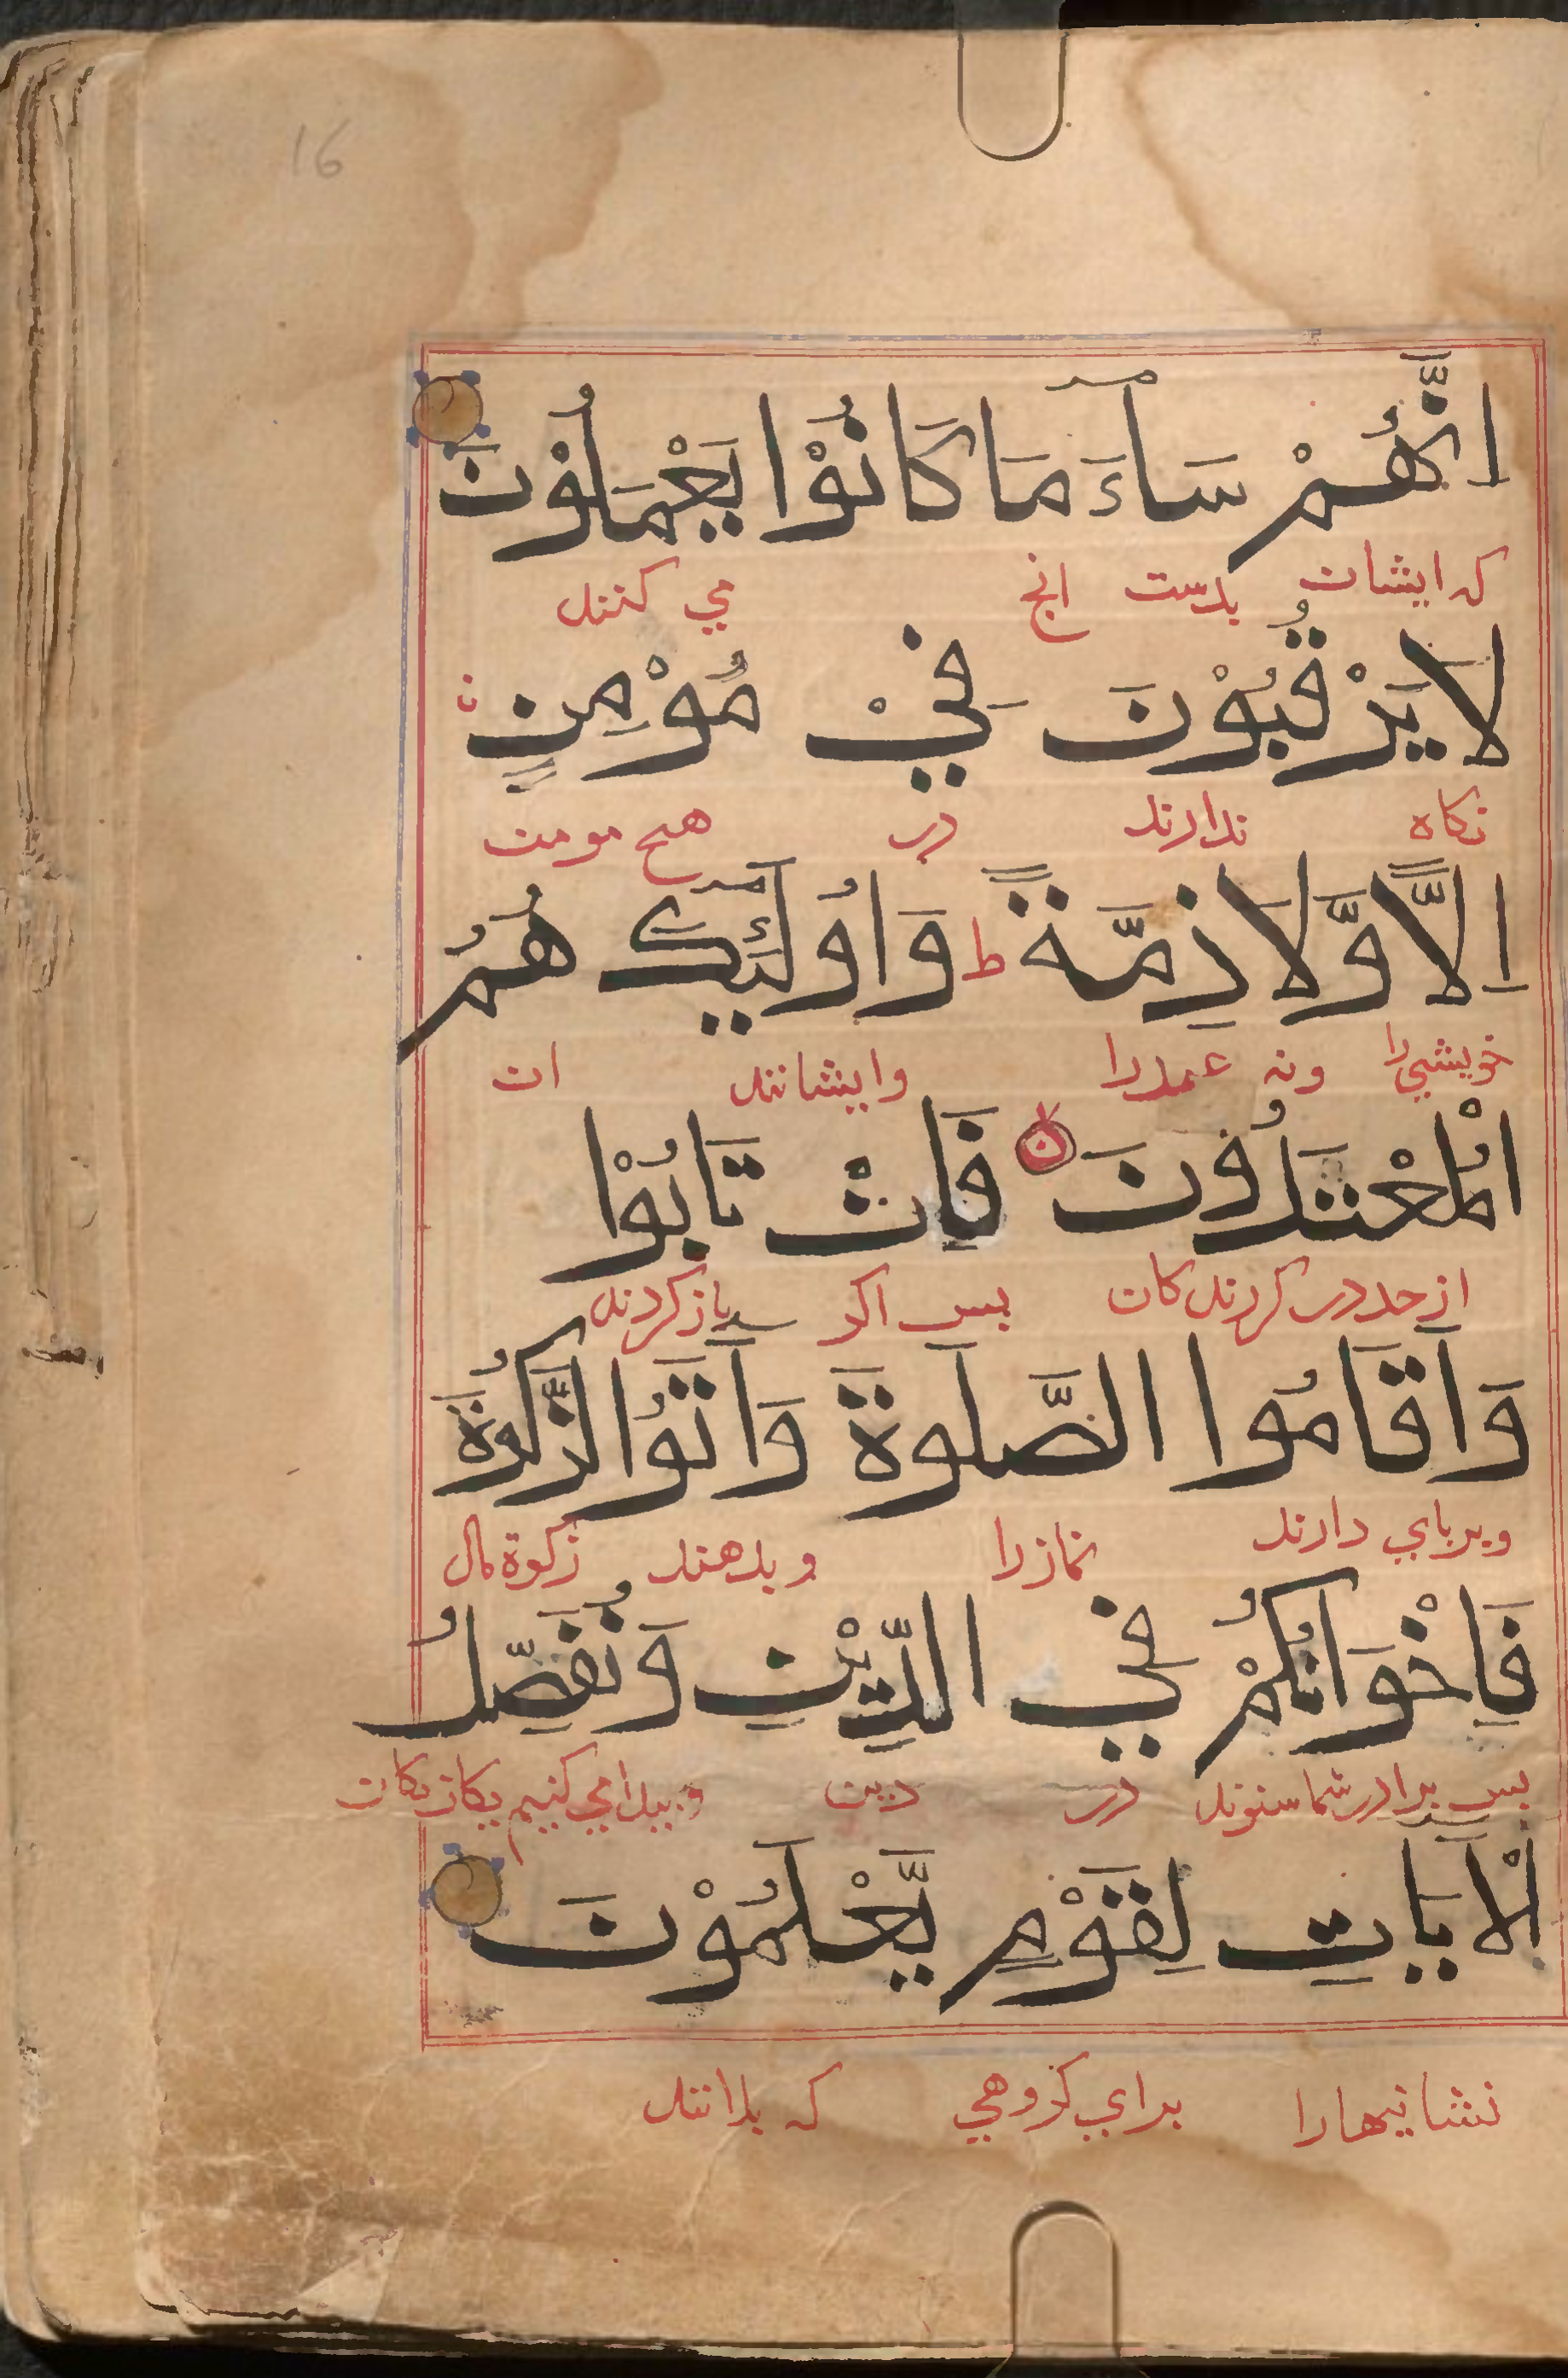 16
اِنَّهُمْ سَآءَ مَا كَانُوْا يَعْمَلُوْنَ
که ایشان بدست انج می کنند
لَا يَرْقُبُوْنَ فِيْ مُؤْمِنٍ
نکاه ندارند در هیچ مومن
اِلًّا وَّلَا ذِمَّةً ط وَاُولٰٓئِكَ هُمُ
خویشی را ونه عهد را وایشانند ان
الْمُعْتَدُوْنَ فَاِنْ تَابُوْا
از حد در کردند کان بس اکر باز کردند
وَاَقَامُوا الصَّلٰوةَ وَاٰتَوُا الزَّكٰوةَ
وبر بای دارند نماز را وبدهند زکوة مال
فَاِخْوَانُكُمْ فِي الدِّيْنِ وَنُفَصِّلُ
بس برادر شما ستوند در دین وبیدا می کنیم یکان یکان
الْاٰيَاتِ لِقَوْمٍ يَّعْلَمُوْنَ
نشانیها را برای کروهی که بدانند